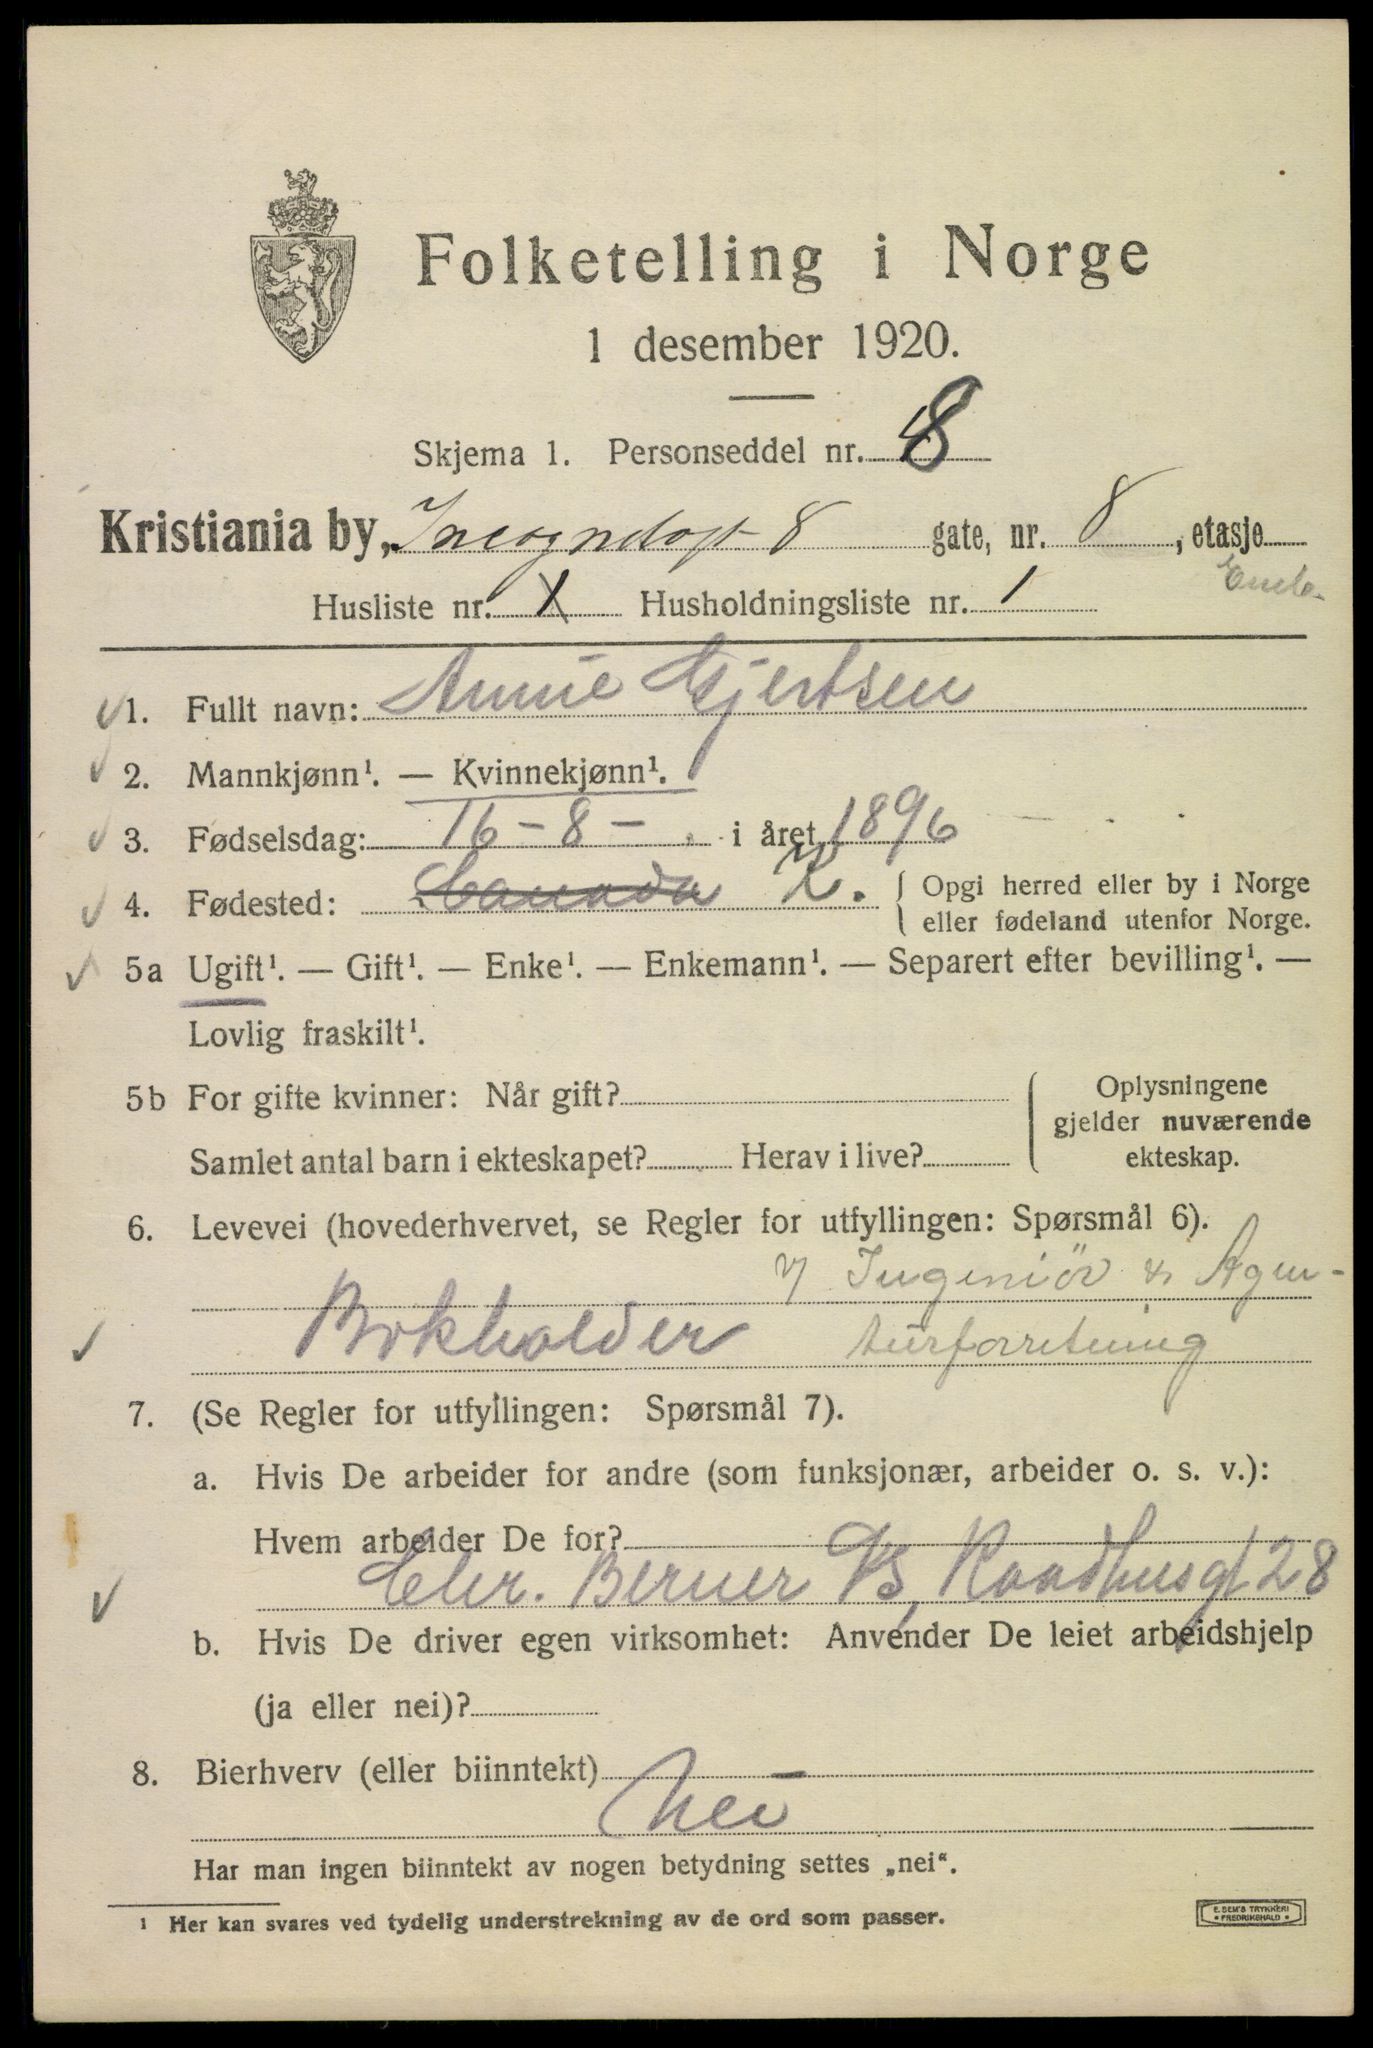 Folketelling i Norge
1 desember 1920.
Skjema 1. Personseddel nr. 8
Kristiania by, Incognitogt 8 gate, nr. 8, etasje
Husliste nr. 1 Husholdningsliste nr. 1
1. Fullt navn: Annie Gjertsen
2. Mannkjønn¹. — Kvinnekjønn¹.
3. Fødselsdag: 16-8- i året 1896
4. Fødested: Canada K. Opgi herred eller by i Norge
eller fødeland utenfor Norge.
5a Ugift¹. — Gift¹. — Enke¹. — Enkemann¹. — Separert efter bevilling¹. —
Lovlig fraskilt¹.
5b For gifte kvinner: Når gift?
Samlet antal barn i ekteskapet? Herav i live?
Oplysningene
gjelder nuværende
ekteskap.
6. Levevei (hovederhvervet, se Regler for utfyllingen: Spørsmål 6).
Ingeniör & Agen-
Bokholder turforretning
7. (Se Regler for utfyllingen: Spørsmål 7).
a. Hvis De arbeider for andre (som funksjonær, arbeider o. s. v.):
Hvem arbeider De for?
Chr. Berner A/S, Raadhusgt 28
b. Hvis De driver egen virksomhet: Anvender De leiet arbeidshjelp
(ja eller nei)?
8. Bierhverv (eller biinntekt)
Nei
Har man ingen biinntekt av nogen betydning settes „nei“.
¹ Her kan svares ved tydelig understrekning av de ord som passer.
E. SEM'S TRYKKERI
• FREDRIKSHALD •